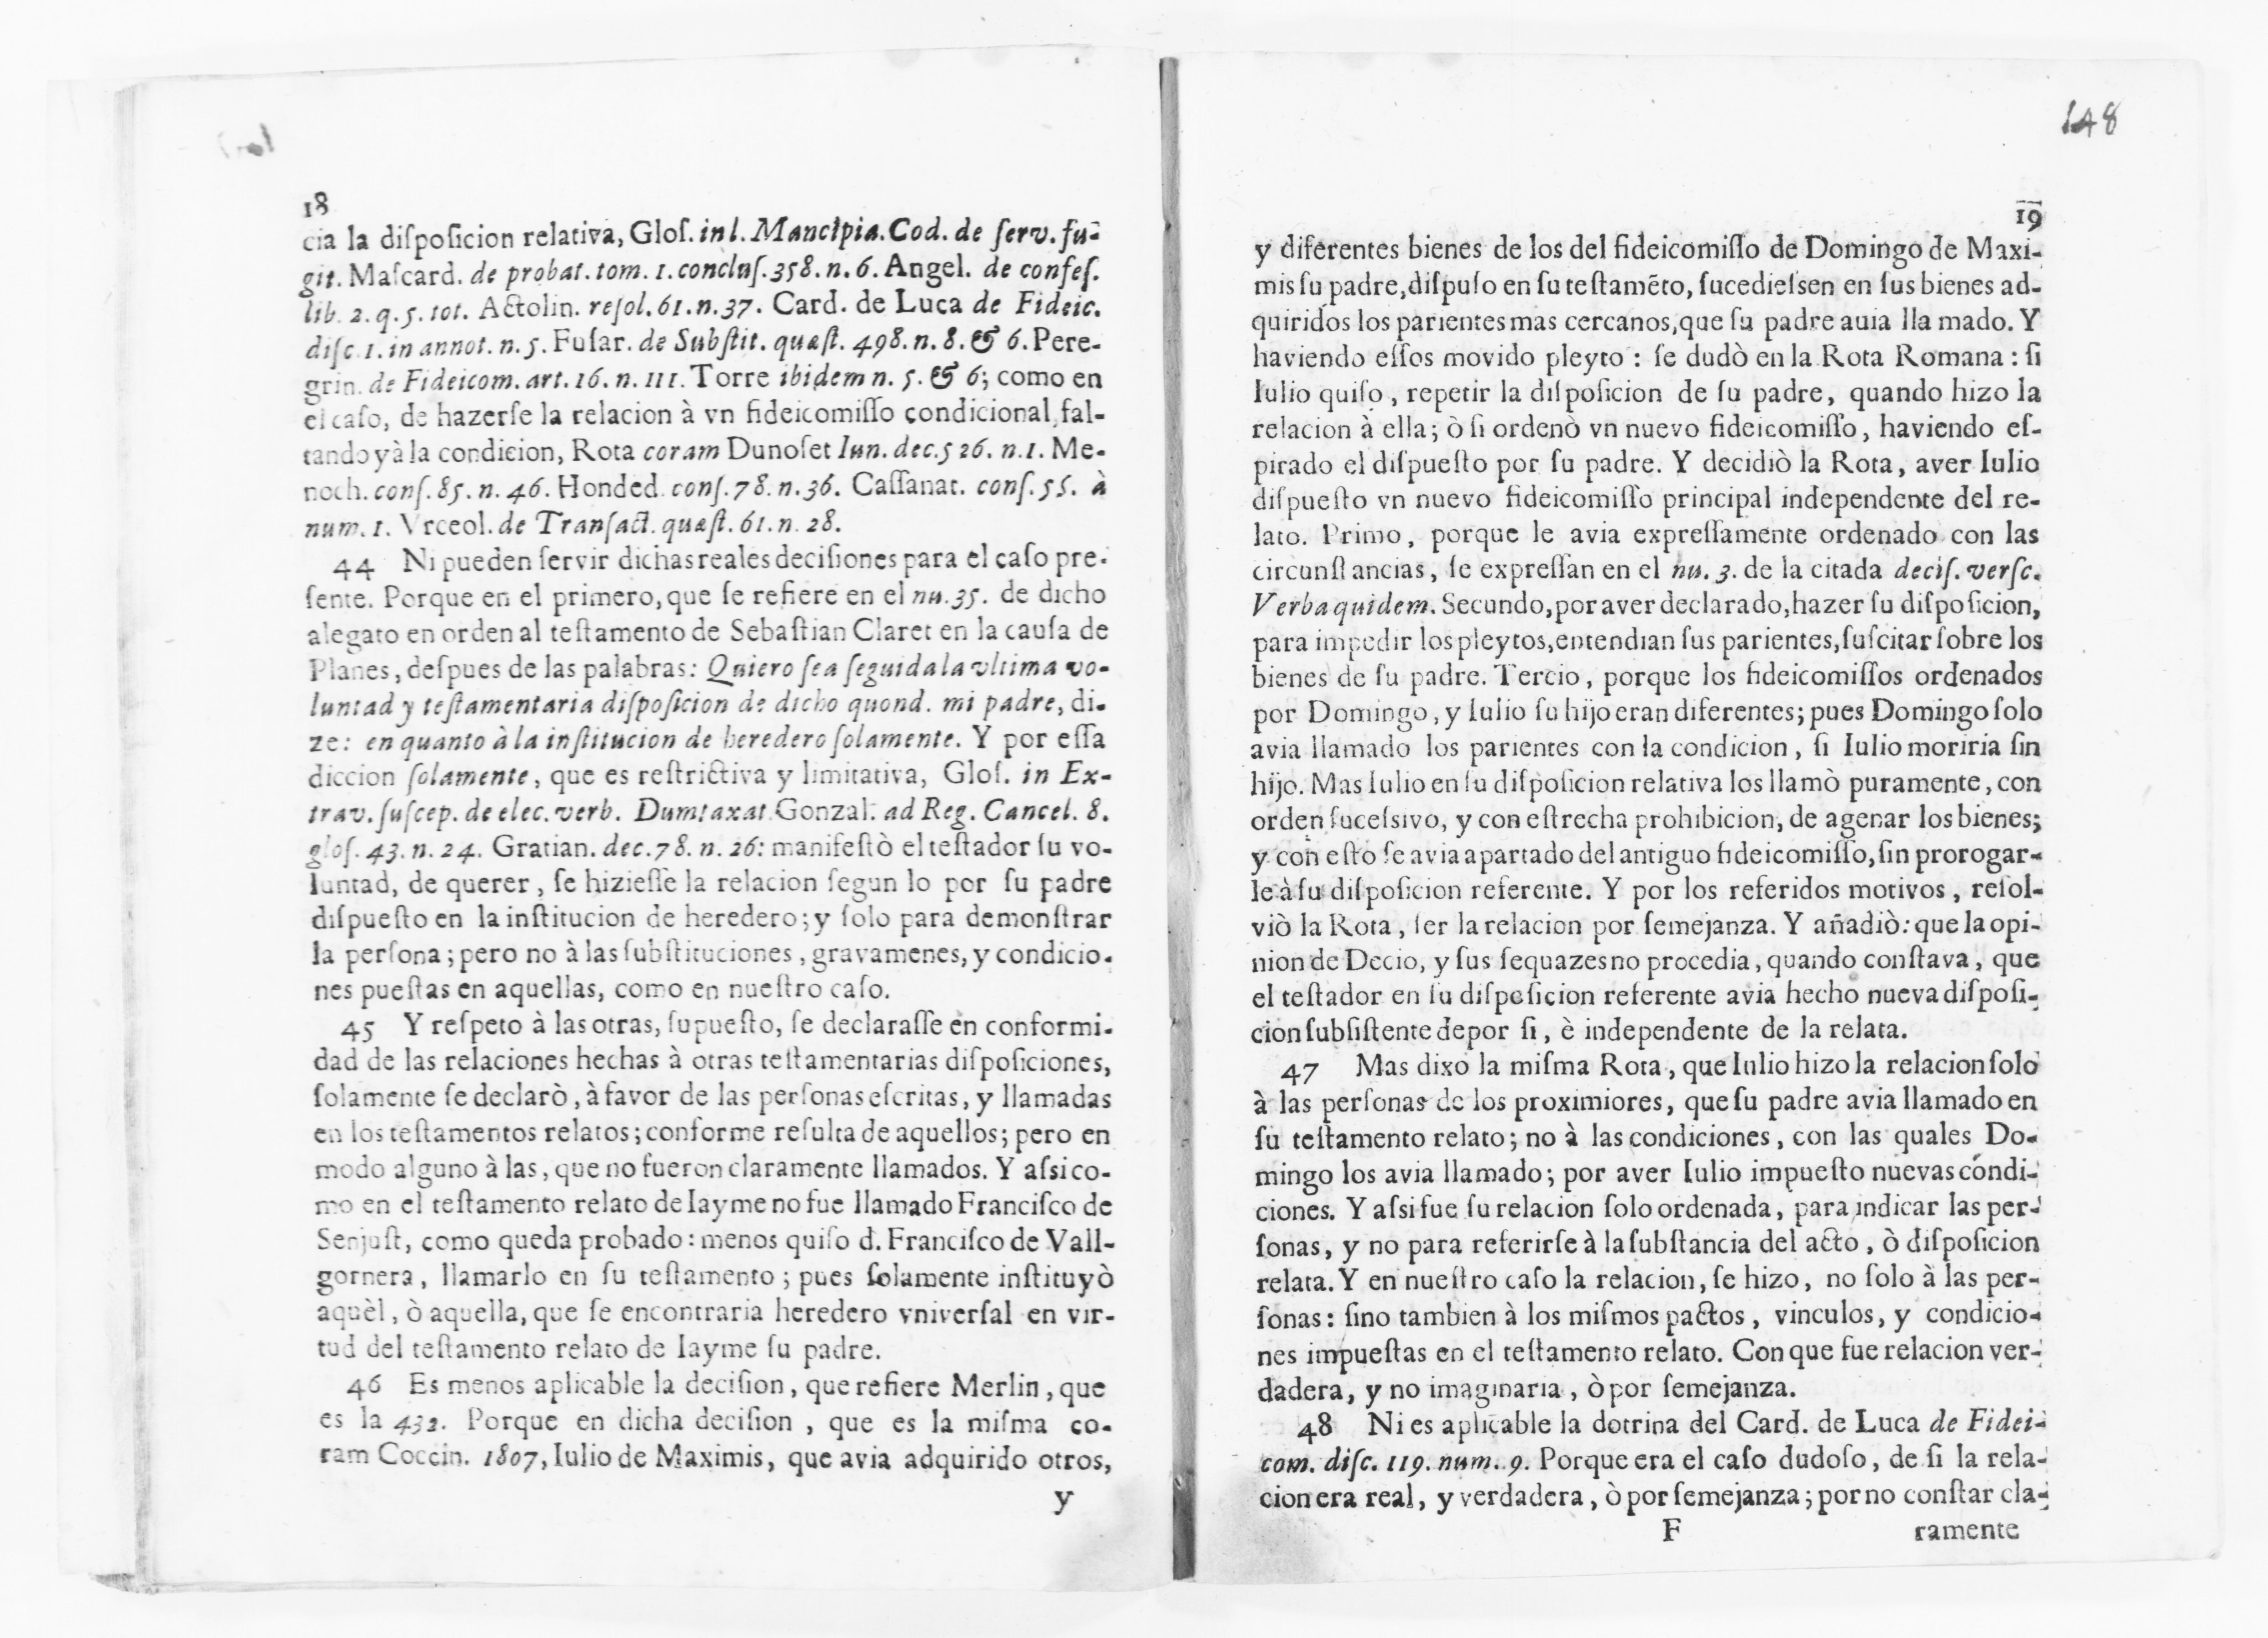 18
cia la disposicion relativa, Glos. in l. Mancipia. Cod. de serv. fu-
git. Mascard. de probat. tom. 1. conclus. 358. n. 6. Angel. de confes.
lib. 2. q. 5. tot. Actolin. resol. 61. n. 37. Card. de Luca de Fideic.
disc. 1. in annot. n. 5. Fusar. de Substit. quæst. 498. n. 8. & 6. Pere-
grin. de Fideicom. art. 16. n. 111. Torre ibidem n. 5. & 6; como en
el caso, de hazerse la relacion à vn fideicomisso condicional, fal-
tando yà la condicion, Rota coram Dunoset Iun. dec. 526. n. 1. Me-
noch. cons. 85. n. 46. Honded. cons. 78. n. 36. Cassanat. cons. 55. à
num. 1. Vrceol. de Transact. quæst. 61. n. 28.
44 Ni pueden servir dichas reales decisiones para el caso pre-
sente. Porque en el primero, que se refiere en el nu. 35. de dicho
alegato en orden al testamento de Sebastian Claret en la causa de
Planes, despues de las palabras: Quiero sea seguida la vltima vo-
luntad y testamentaria disposicion de dicho quond. mi padre, di-
ze: en quanto à la institucion de heredero solamente. Y por essa
diccion solamente, que es restrictiva y limitativa, Glos. in Ex-
trav. suscep. de elec. verb. Dumtaxat Gonzal. ad Reg. Cancel. 8.
glos. 43. n. 24. Gratian. dec. 78. n. 26: manifestò el testador su vo-
luntad, de querer, se hiziesse la relacion segun lo por su padre
dispuesto en la institucion de heredero; y solo para demonstrar
la persona; pero no à las substituciones, gravamenes, y condicio-
nes puestas en aquellas, como en nuestro caso.
45 Y respeto à las otras, supuesto, se declarasse en conformi-
dad de las relaciones hechas à otras testamentarias disposiciones,
solamente se declarò, à favor de las personas escritas, y llamadas
en los testamentos relatos; conforme resulta de aquellos; pero en
modo alguno à las, que no fueron claramente llamados. Y assi co-
mo en el testamento relato de Iayme no fue llamado Francisco de
Senjust, como queda probado: menos quiso d. Francisco de Vall-
gornera, llamarlo en su testamento; pues solamente instituyò
aquèl, ò aquella, que se encontraria heredero vniversal en vir-
tud del testamento relato de Iayme su padre.
46 Es menos aplicable la decision, que refiere Merlin, que
es la 432. Porque en dicha decision, que es la misma co-
ram Coccin. 1807, Iulio de Maximis, que avia adquirido otros,
y
148
19
y diferentes bienes de los del fideicomisso de Domingo de Maxi-
mis su padre, dispuso en su testamẽto, sucediessen en sus bienes ad-
quiridos los parientes mas cercanos, que su padre auia lla mado. Y
haviendo essos movido pleyto: se dudò en la Rota Romana: si
Iulio quiso, repetir la disposicion de su padre, quando hizo la
relacion à ella; ò si ordenò vn nuevo fideicomisso, haviendo es-
pirado el dispuesto por su padre. Y decidiò la Rota, aver Iulio
dispuesto vn nuevo fideicomisso principal independente del re-
lato. Primo, porque le avia expressamente ordenado con las
circunstancias, se expressan en el nu. 3. de la citada decis. versc.
Verba quidem. Secundo, por aver declarado, hazer su disposicion,
para impedir los pleytos, entendian sus parientes, suscitar sobre los
bienes de su padre. Tercio, porque los fideicomissos ordenados
por Domingo, y Iulio su hijo eran diferentes; pues Domingo solo
avia llamado los parientes con la condicion, si Iulio moriria sin
hijo. Mas Iulio en su disposicion relativa los llamò puramente, con
orden sucessivo, y con estrecha prohibicion, de agenar los bienes;
y con esto se avia apartado del antiguo fideicomisso, sin prorogar-
le à su disposicion referente. Y por los referidos motivos, resol-
viò la Rota, ser la relacion por semejanza. Y añadiò: que la opi-
nion de Decio, y sus sequazes no procedia, quando constava, que
el testador en su disposicion referente avia hecho nueva disposi-
cion subsistente de por si, è independente de la relata.
47 Mas dixo la misma Rota, que Iulio hizo la relacion solo
à las personas de los proximiores, que su padre avia llamado en
su testamento relato; no à las condiciones, con las quales Do-
mingo los avia llamado; por aver Iulio impuesto nuevas condi-
ciones. Y assi fue su relacion solo ordenada, para indicar las per-
sonas, y no para referirse à la substancia del acto, ò disposicion
relata. Y en nuestro caso la relacion, se hizo, no solo à las per-
sonas: sino tambien à los mismos pactos, vinculos, y condicio-
nes impuestas en el testamento relato. Con que fue relacion ver-
dadera, y no imaginaria, ò por semejanza.
48 Ni es aplicable la dotrina del Card. de Luca de Fidei-
com. disc. 119. num. 9. Porque era el caso dudoso, de si la rela-
cion era real, y verdadera, ò por semejanza; por no constar cla-
F ramente